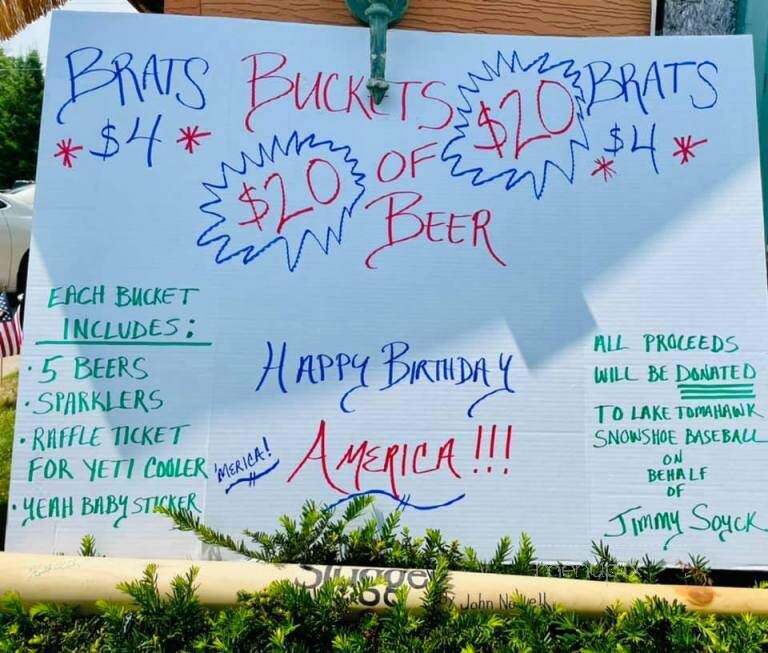 BRATS
* $4 *
BUCKETS
$20
OF
$20
BEER
BRATS
* $4 *
EACH BUCKET
INCLUDES:
· 5 BEERS
· SPARKLERS
· RAFFLE TICKET
FOR YETI COOLER
· YEAH BABY STICKER
HAPPY BIRTHDAY
'MERICA!
AMERICA!!!
ALL PROCEEDS
WILL BE DONATED
TO LAKE TOMAHAWK
SNOWSHOE BASEBALL
ON
BEHALF
OF
Jimmy Soyck
Slugge
John